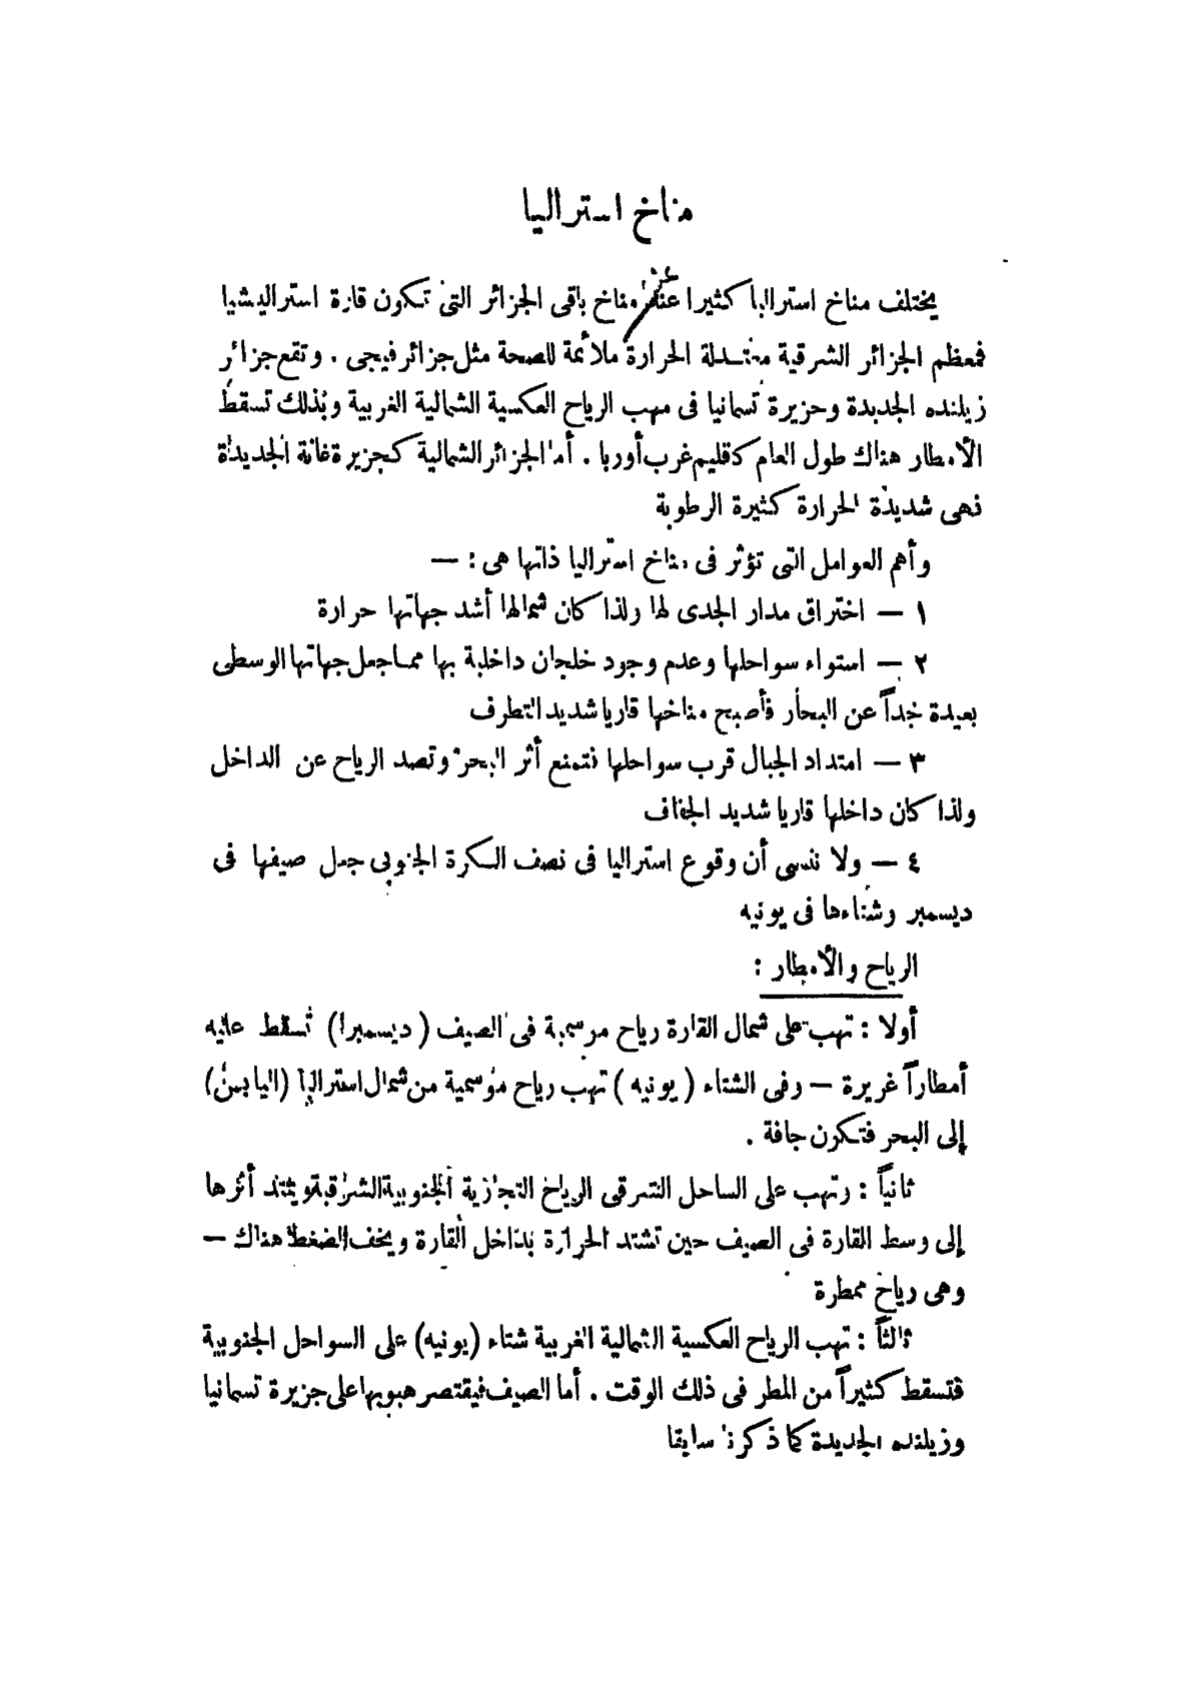 مناخ استراليا
يختلف مناخ استراليا كثيرا عن مناخ باقى الجزائر التى تكون قارة استراليشيا
فمعظم الجزائر الشرقية معتدلة الحرارة ملائمة للصحة مثل جزائر فيجى . وتقع جزائر
زيلنده الجديدة وجزيرة تسمانيا فى مهب الرياح العكسية الشمالية الغربية وبذلك تسقط
الأمطار هناك طول العام كاقليم غرب أوربا . أما الجزائر الشمالية كجزيرة غانة الجديدة
فهى شديدة الحرارة كثيرة الرطوبة
وأهم العوامل التى تؤثر فى مناخ استراليا ذاتها هى : —
١ — اختراق مدار الجدى لها ولذا كان شمالها أشد جهاتها حرارة
٢ — استواء سواحلها وعدم وجود خلجان داخلية بها مما جعل جهاتها الوسطى
بعيدة جداً عن البحار فأصبح مناخها قاريا شديد التطرف
٣ — امتداد الجبال قرب سواحلها فتمنع أثر البحر وتصد الرياح عن الداخل
ولذا كان داخلها قاريا شديد الجفاف
٤ — ولا ننسى أن وقوع استراليا فى نصف الكرة الجنوبى جعل صيفها فى
ديسمبر وشتاءها فى يونيه
الرياح والأمطار :
أولا : تهب على شمال القارة رياح موسمية فى الصيف ( ديسمبر ) تسقط عليه
أمطاراً غزيرة — وفى الشتاء ( يونيه ) تهب رياح موسمية من شمال استراليا (اليابس)
إلى البحر فتكون جافة .
ثانياً : وتهب على الساحل الشرقى الرياح التجارية الجنوبية الشرقية ويمتد أثرها
إلى وسط القارة فى الصيف حين تشتد الحرارة بداخل القارة ويخف الضغط هناك —
وهى رياح ممطرة
ثالثاً : تهب الرياح العكسية الشمالية الغربية شتاء (يونيه) على السواحل الجنوبية
فتسقط كثيراً من المطر فى ذلك الوقت . أما الصيف فيقتصر هبوبها على جزيرة تسمانيا
وزيلنده الجديدة كما ذكرنا سابقا